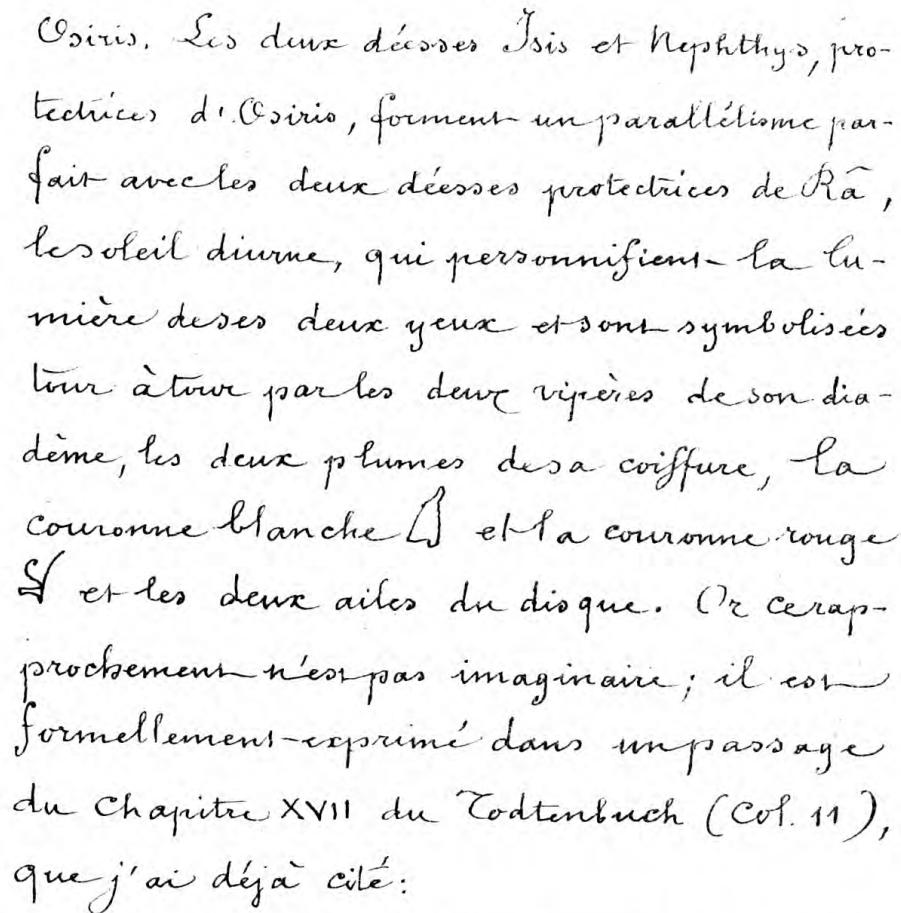 Osiris. Les deux déesses Isis et Nephthys, pro-
tectrices d'Osiris, forment un parallélisme par-
fait avec les deux déesses protectrices de Râ,
le soleil diurne, qui personnifient la lu-
mière de ses deux yeux et sont symbolisées
tour à tour par les deux vipères de son dia-
dème, les deux plumes de sa coiffure, la
couronne blanche 𓋑 et la couronne rouge
𓋔 et les deux ailes du disque. Or ce rap-
prochement n'est pas imaginaire; il est
formellement exprimé dans un passage
du Chapitre XVII du Todtenbuch (Col. 11),
que j'ai déjà cité: